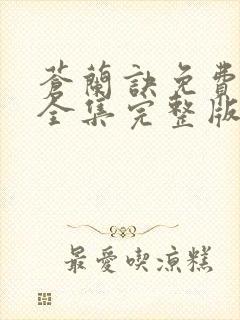 蒼蘭訣免費
全集完整版
最愛喫涼糕